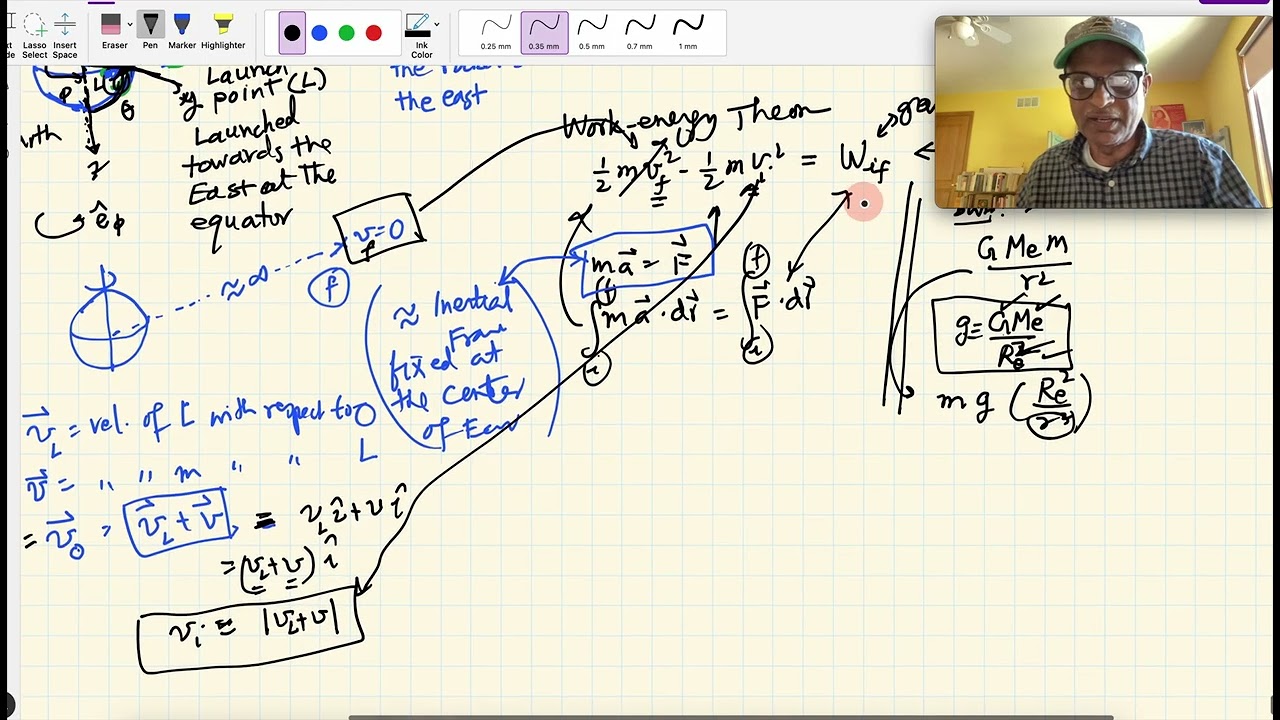 Lasso
Select
Insert
Space
Eraser
Pen
Marker
Highlighter
Ink
Color
0.25 mm
0.35 mm
0.5 mm
0.7 mm
1 mm
Launch
point (L)
Launched
towards the
East at the
equator
ê φ
the east
Work-energy Theorem
½ m v_f² - ½ m v_i² = W_if
v_f = 0
f
≈ ∞
m a⃗ = F⃗
∫ m a⃗ · dr⃗ = ∫ F⃗ · dr⃗
f
i
f
i
≈ Inertial
Frame
fixed at
the center
of Earth
G Me m
r²
g = GMe
Re²
m g (Re²/r²)
v⃗_L = vel. of L with respect to O
v⃗ = " " m " " L
= v⃗_0 = v⃗_L + v⃗ = v_L î + v î
= (v_L + v) î
v_i = |v_L + v|